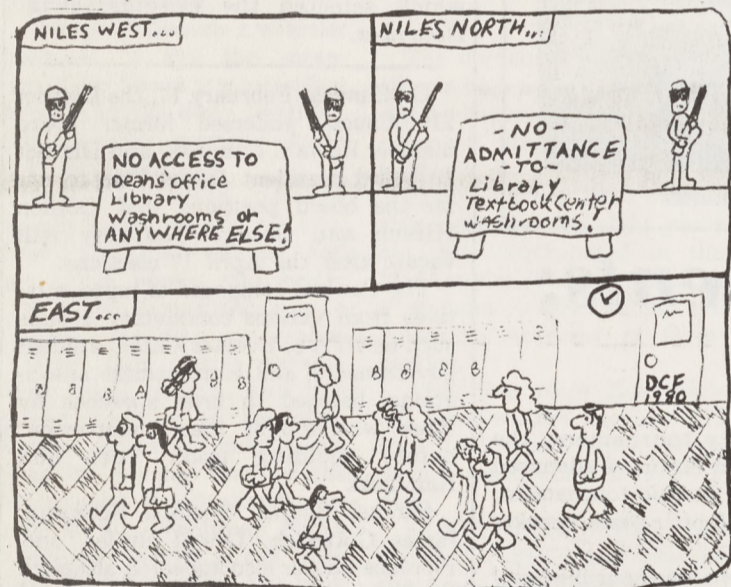 NILES WEST...
NO ACCESS TO
Deans' office
Library
washrooms or
ANYWHERE ELSE!
NILES NORTH...
- NO -
ADMITTANCE
- TO -
Library
Textbook Center
washrooms!
EAST...
DCF
1980